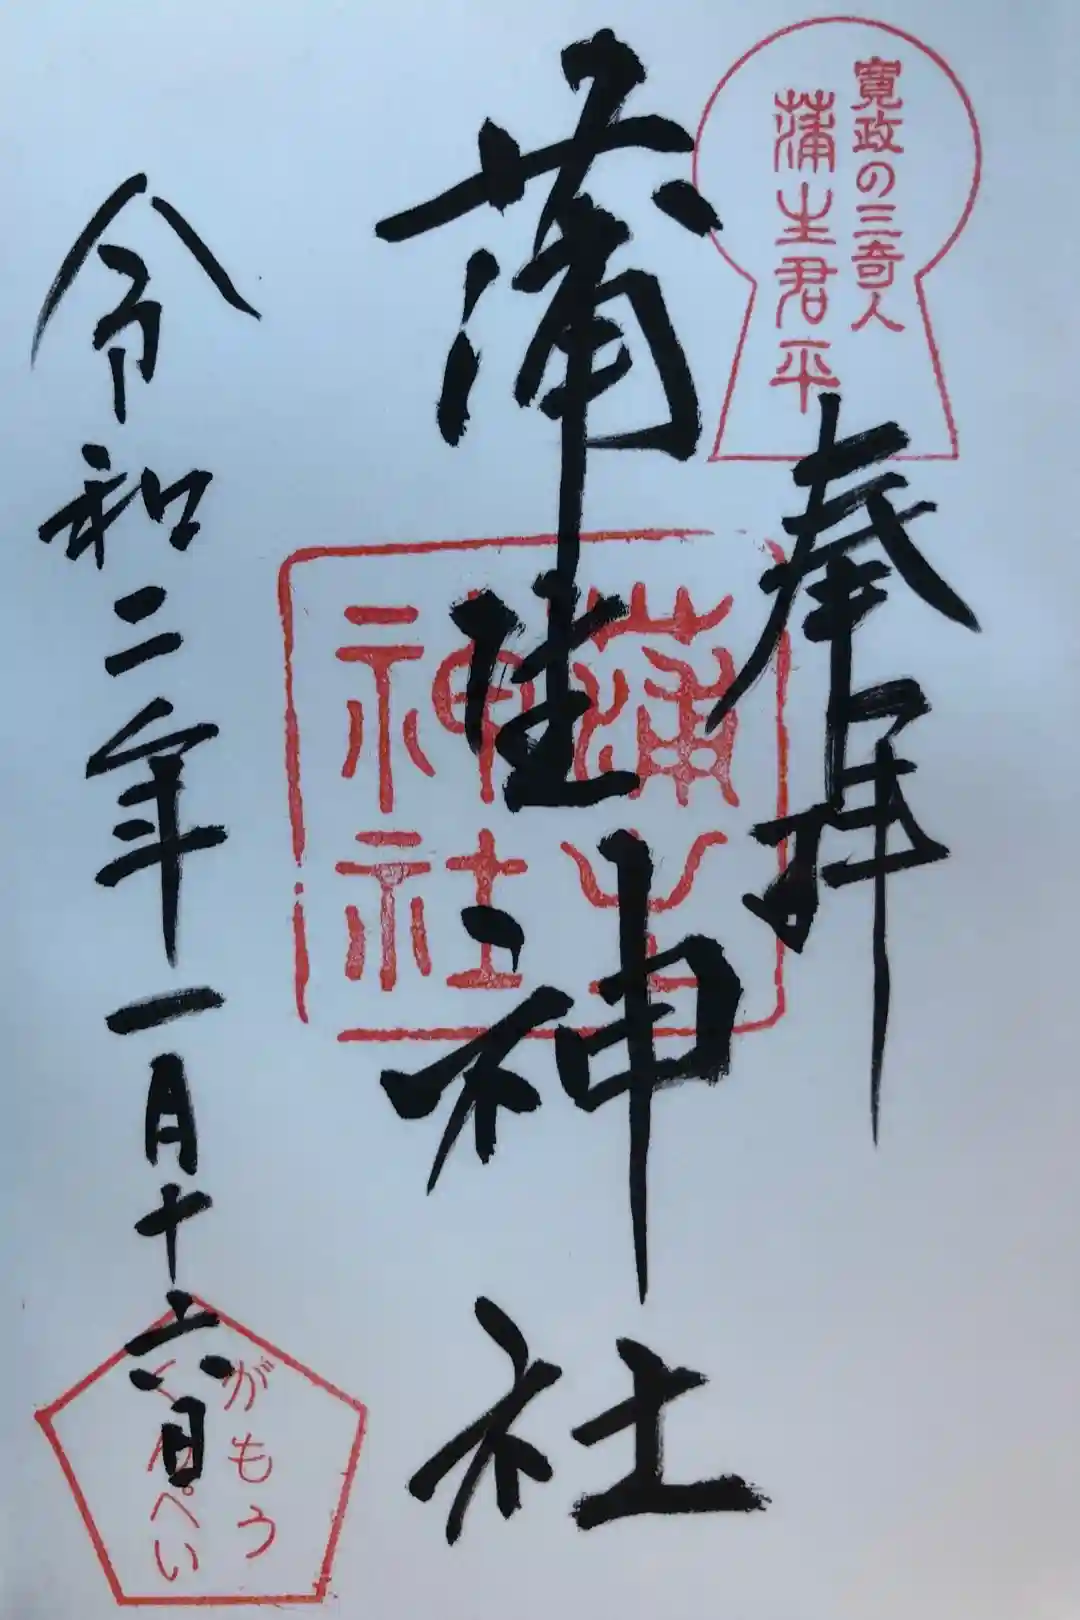 寛政の三奇人
蒲生君平
奉拝
蒲生神社
蒲生
神社
令和二年一月十六日
がもう
くんぺい